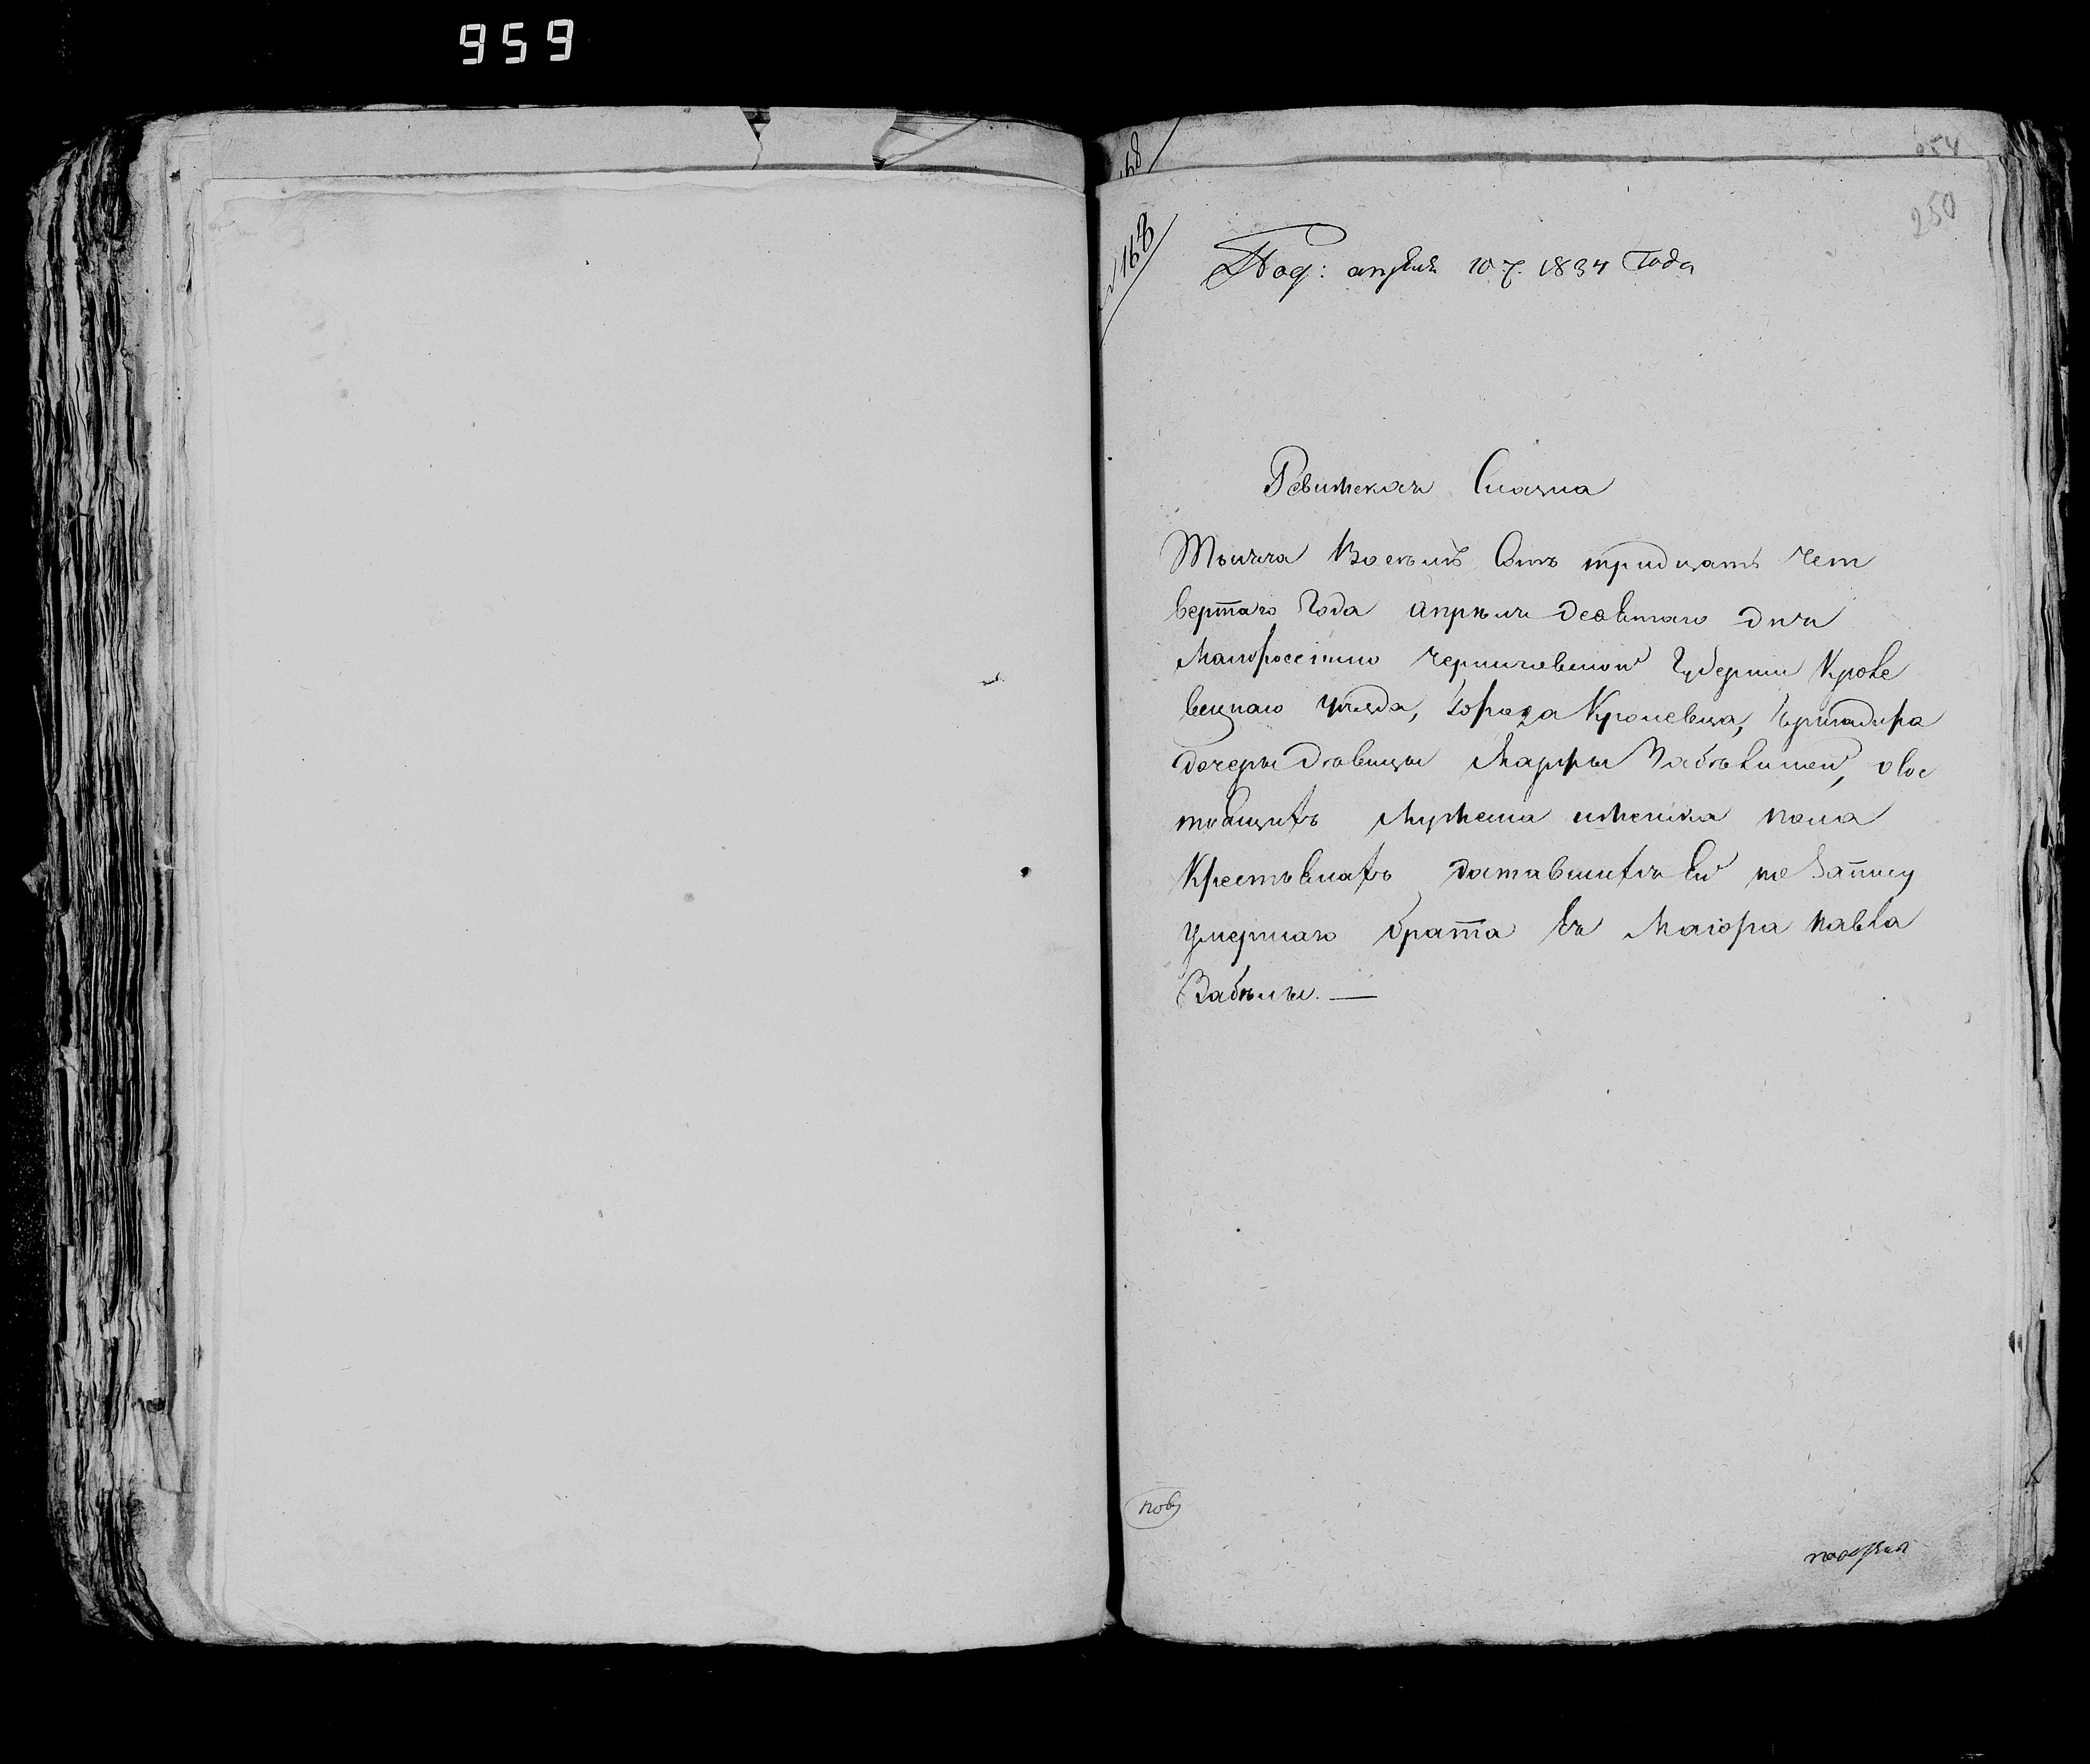 959
250
168
Под: апреля 10 ч. 1834 года
Ревижская Сказка
Тысяча Восемь Сотъ тридцать чет
вертаго года апреля девятаго дня
Малоросеткию Черниговской Губернии Кроле
вецкаго уѣзда, города Кролевца, бригадира
дочеры дѣвицы Марфы Забѣлиной, о вос
тоящихъ мужеска иженска пола
Крестьянахъ доставшихся Ей по Запису
умершаго брата Ея Маіора Павла
Забѣлы. —
пов